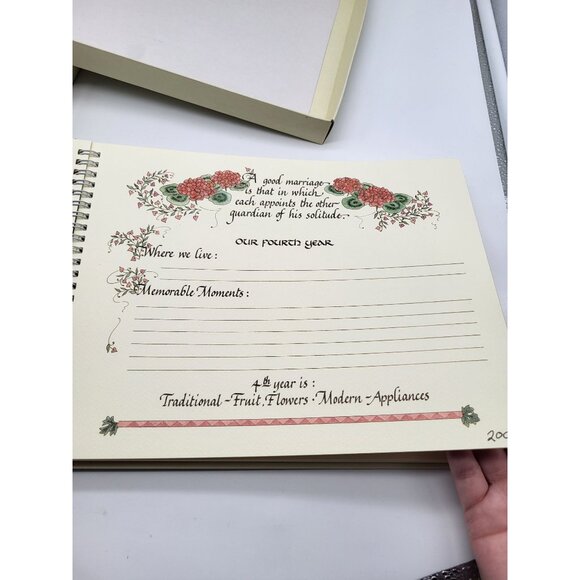 A good marriage
is that in which
each appoints the other
guardian of his solitude.
OUR FOURTH YEAR
Where we live:
Memorable Moments:
4th year is:
Traditional - Fruit, Flowers · Modern - Appliances